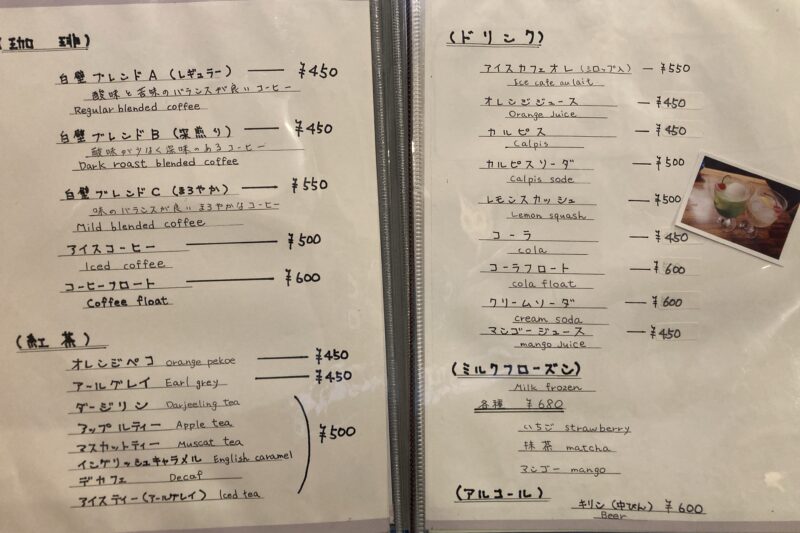 (珈 琲)
白壁ブレンドA (レギュラー) ― ¥450
酸味と苦味のバランスが良いコーヒー
Regular blended coffee
白壁ブレンドB (深煎り) ― ¥450
酸味が少なく深味のあるコーヒー
Dark roast blended coffee
白壁ブレンドC (まろやか) ― ¥550
味のバランスが良いまろやかなコーヒー
Mild blended coffee
アイスコーヒー ― ¥500
Iced coffee
コーヒーフロート ― ¥600
Coffee float
(紅 茶)
オレンジペコ orange pekoe ― ¥450
アールグレイ Earl grey ― ¥450
ダージリン Darjeeling tea
アップルティー Apple tea
マスカットティー Muscat tea
¥500
イングリッシュキャラメル English caramel
デカフェ Decaf
アイスティー(アールグレイ) Iced tea
(ドリンク)
アイスカフェオレ (シロップ入) ― ¥550
Ice cafe au lait
オレンジジュース ― ¥450
Orange Juice
カルピス ― ¥450
Calpis
カルピスソーダ ― ¥500
Calpis sode
レモンスカッシュ ― ¥500
Lemon squash
コーラ ― ¥450
cola
コーラフロート ― ¥600
cola float
クリームソーダ ― ¥600
cream soda
マンゴージュース ― ¥450
mango Juice
(ミルクフローズン)
Milk frozen
各種 ¥680
いちご strawberry
抹茶 matcha
マンゴー mango
(アルコール)
キリン (中びん) ¥600
Beer